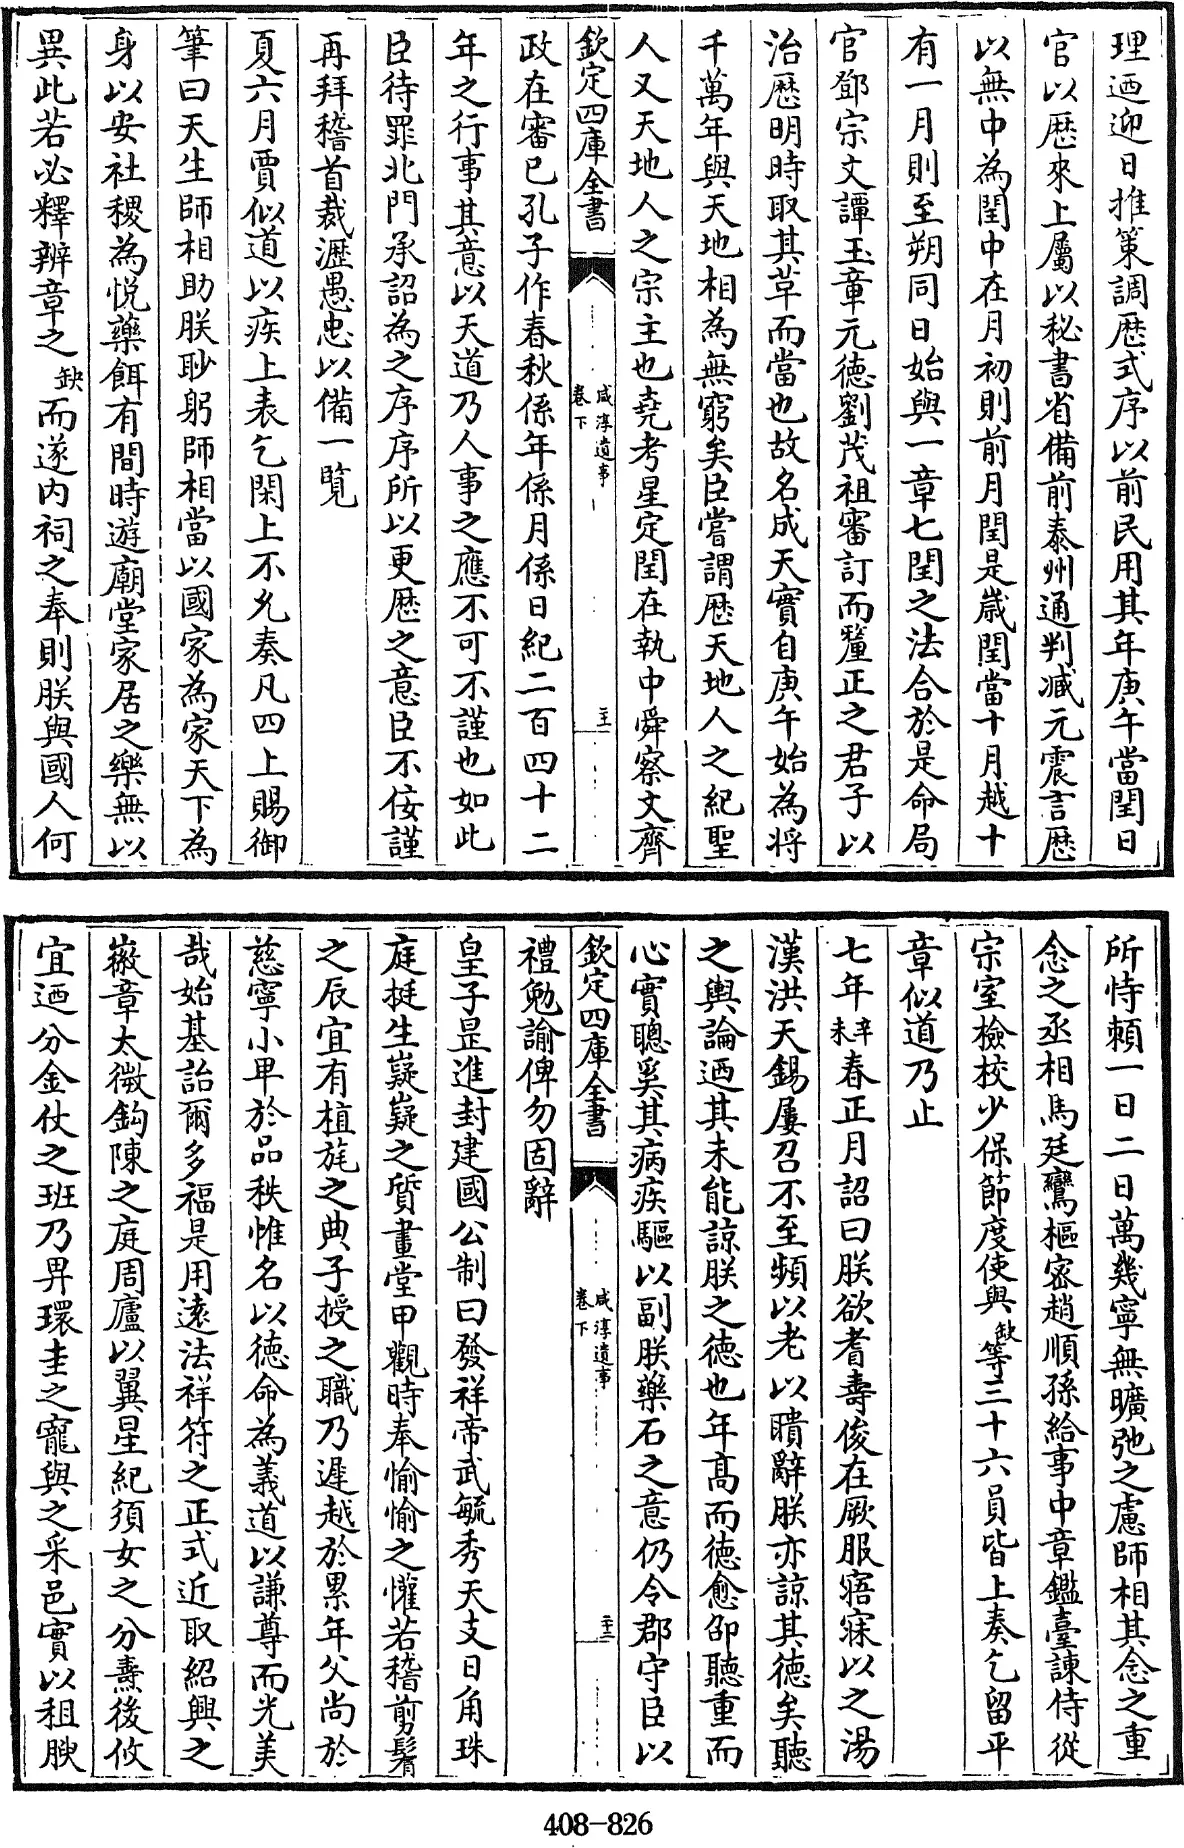 理迺迎日推策調歴式序以前民用其年庚午當閏日
官以歴來上屬以秘書省備前泰州通判臧元震言歴
以無中為閏中在月初則前月閏是嵗閏當十月越十
有一月則至朔同日始與一章七閏之法合於是命局
官鄧宗文譚玉章元徳劉茂祖審訂而釐正之君子以
治歴明時取其草而當也故名成天實自庚午始為将
千萬年與天地相為無窮矣臣嘗謂歴天地人之紀聖
人又天地人之宗主也堯考星定閏在執中舜察文齊
欽定四庫全書
咸淳遺事
卷下
政在審已孔子作春秋係年係月係日紀二百四十二
年之行事其意以天道乃人事之應不可不謹也如此
臣待罪北門承詔為之序序所以更歴之意臣不佞謹
再拜稽首裁瀝愚忠以備一覧
夏六月賈似道以疾上表乞閑上不允奏凡四上賜御
筆曰天生師相助朕眇躬師相當以國家為家天下為
身以安社稷為悦藥餌有間時遊廟堂家居之樂無以
異此若必釋辨章之缺而遂内祠之奉則朕與國人何
所恃賴一日二日萬幾寧無曠弛之慮師相其念之重
念之丞相馬廷鸞樞密趙順孫給事中章鑑臺諫侍從
宗室檢校少保節度使與缺等三十六員皆上奏乞留平
章似道乃止
七年辛未春正月詔曰朕欲耆壽俊在厥服寤寐以之湯
漢洪天錫屢召不至頻以老以聵辭朕亦諒其徳矣聽
之輿論迺其未能諒朕之徳也年高而徳愈卲聽重而
心實聰奚其病疾驅以副朕藥石之意仍令郡守臣以
欽定四庫全書
咸淳遺事
卷下
禮勉諭俾勿固辭
皇子昰進封建國公制曰發祥帝武毓秀天支日角珠
庭挺生嶷嶷之質畫堂甲觀時奉愉愉之懽若稽前剪鬌
之辰宜有植旄之典子授之職乃遲越於累年父尚於
慈寧小甲於品秩惟名以徳命為義道以謙尊而光美
哉始基詒爾多福是用逺法祥符之正式近取紹興之
徽章太微鈎陳之庭周廬以翼星紀須女之分燾後攸
宜迺分金仗之班乃畀環圭之寵與之采邑實以租腴
408-826